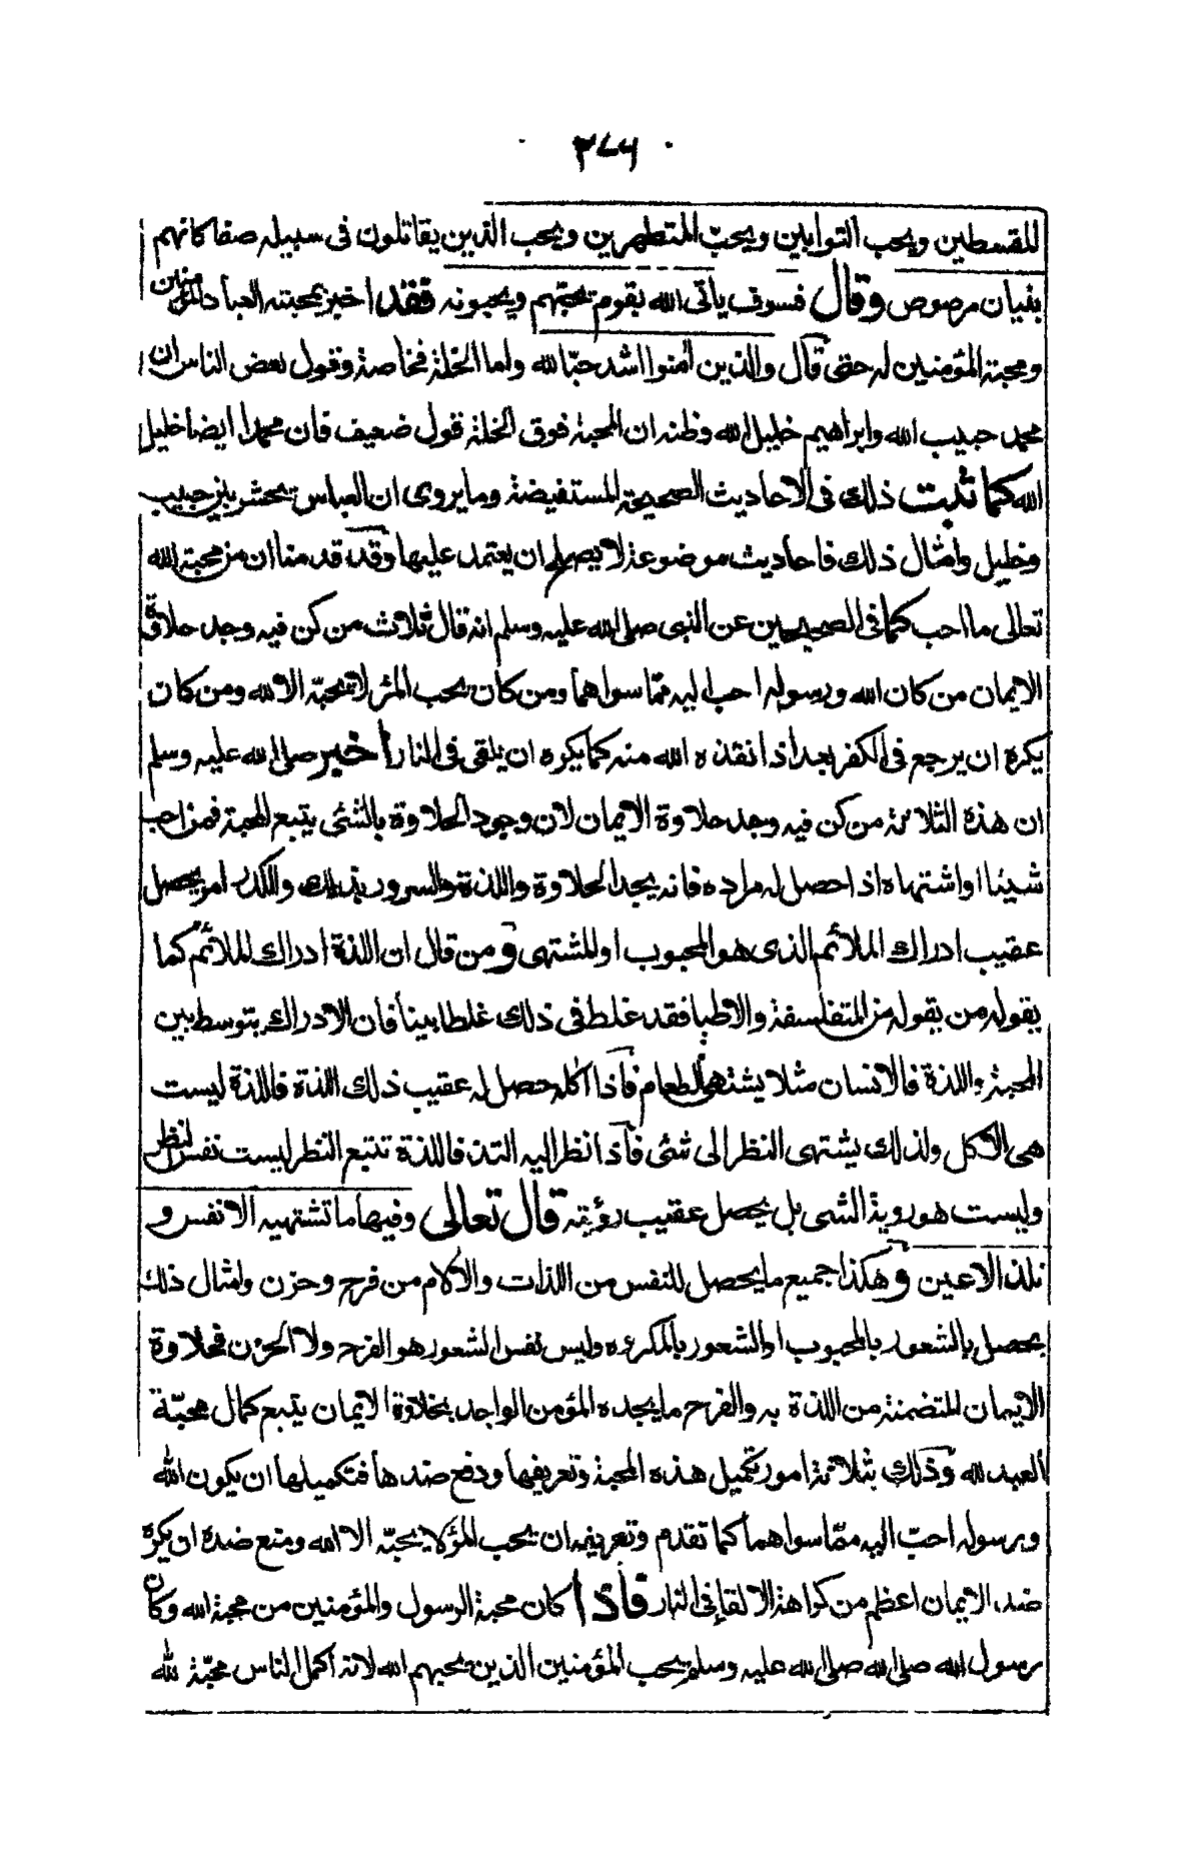 ٣٧٦
المقسطين ويحب التوابين ويحبّ المتطهرين ويحب الذين يقاتلون فى سبيله صفا كانهم
بنيان مرصوص وقال فسوف ياتى الله بقوم يحبّهم ويحبونه فقد اخبر بمحبته لعباده المؤمنين
ومحبة المؤمنين له حتى قال والذين آمنوا اشد حبّا لله واما الخلة فخاصة وقول بعض الناس ان
محمد حبيب الله وابراهيم خليل الله وظنه ان المحبة فوق الخلة قول ضعيف فان محمدا ايضا خليل
الله كما ثبت ذلك فى الاحاديث الصحيحة المستفيضة وما يروى ان العباس يحشر بين حبيب
وخليل وامثال ذلك فاحاديث موضوعة لا يصلح ان يعتمد عليها وقد قدمنا ان من محبة الله
تعالى ما احب كما فى الصحيحين عن النبى صلى الله عليه وسلم انه قال ثلاث من كن فيه وجد حلاوة
الايمان من كان الله ورسوله احب اليه ممّا سواهما ومن كان يحب المرء لا يحبّه الا لله ومن كان
يكره ان يرجع فى الكفر بعد اذ انقذه الله منه كما يكره ان يلقى فى النار اخبر صلى الله عليه وسلم
ان هذه الثلاثة من كن فيه وجد حلاوة الايمان لان وجود الحلاوة بالشئ يتبع المحبة فمن احب
شيئا او اشتهاه اذا حصل له مراده فانه يجد الحلاوة واللذة والسرور بذلك واللذة امر يحصل
عقيب ادراك الملائم الذى هو المحبوب او المشتهى ومن قال ان اللذة ادراك الملائم كما
يقوله من يقوله من المتفلسفة والاطبا فقد غلط فى ذلك غلطا بينا فان الادراك يتوسط بين
المحبة واللذة فالانسان مثلا يشتهى الطعام فاذا اكله حصل له عقيب ذلك اللذة فاللذة ليست
هى الاكل ولذلك يشتهى النظر الى شئ فاذا نظر اليه التذ فاللذة تتبع النظر ليست نفس النظر
وليست هو روية الشى بل يحصل عقيب رؤيته قال تعالى وفيها ما تشتهيه الانفس و
تلذ الاعين وهكذا جميع ما يحصل للنفس من اللذات والآلام من فرح وحزن وامثال ذلك
يحصل بالشعور بالمحبوب او الشعور بالمكروه وليس نفس الشعور هو الفرح ولا الحزن فحلاوة
الايمان المتضمنة من اللذة به والفرح ما يجده المؤمن الواجد بحلاوة الايمان يتبع كمال محبّة
العبد لله وذلك بثلاثة امور تكميل هذه المحبة وتعريفها ودفع ضدها فتكميلها ان يكون الله
ورسوله احبّ اليه ممّا سواهما كما تقدم وتعريفها ان يحب المرء لا يحبّه الا لله ومنع ضده ان يكره
ضد الايمان اعظم من كراهة الالقا فى النار فاذا كان محبة الرسول والمؤمنين من محبة الله وكان
رسول الله صلى الله صلى الله عليه وسلم يحب المؤمنين الذين يحبهم الله لانه اكمل الناس محبّة لله